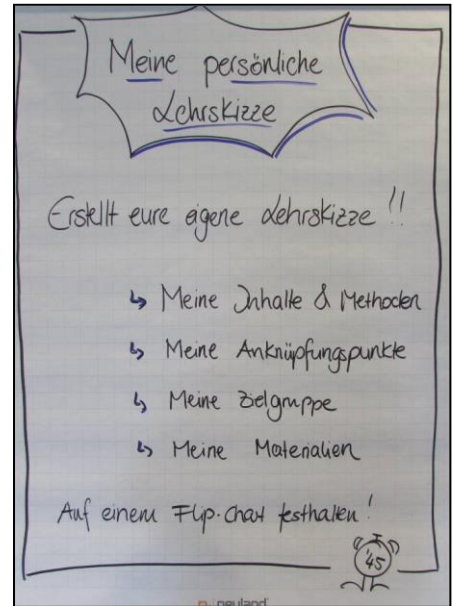 Meine persönliche
Lehrskizze
Erstellt eure eigene Lehrskizze!!
↳ Meine Inhalte & Methoden
↳ Meine Anknüpfungspunkte
↳ Meine Zielgruppe
↳ Meine Materialien
Auf einem Flip-Chart festhalten!
'45
neuland